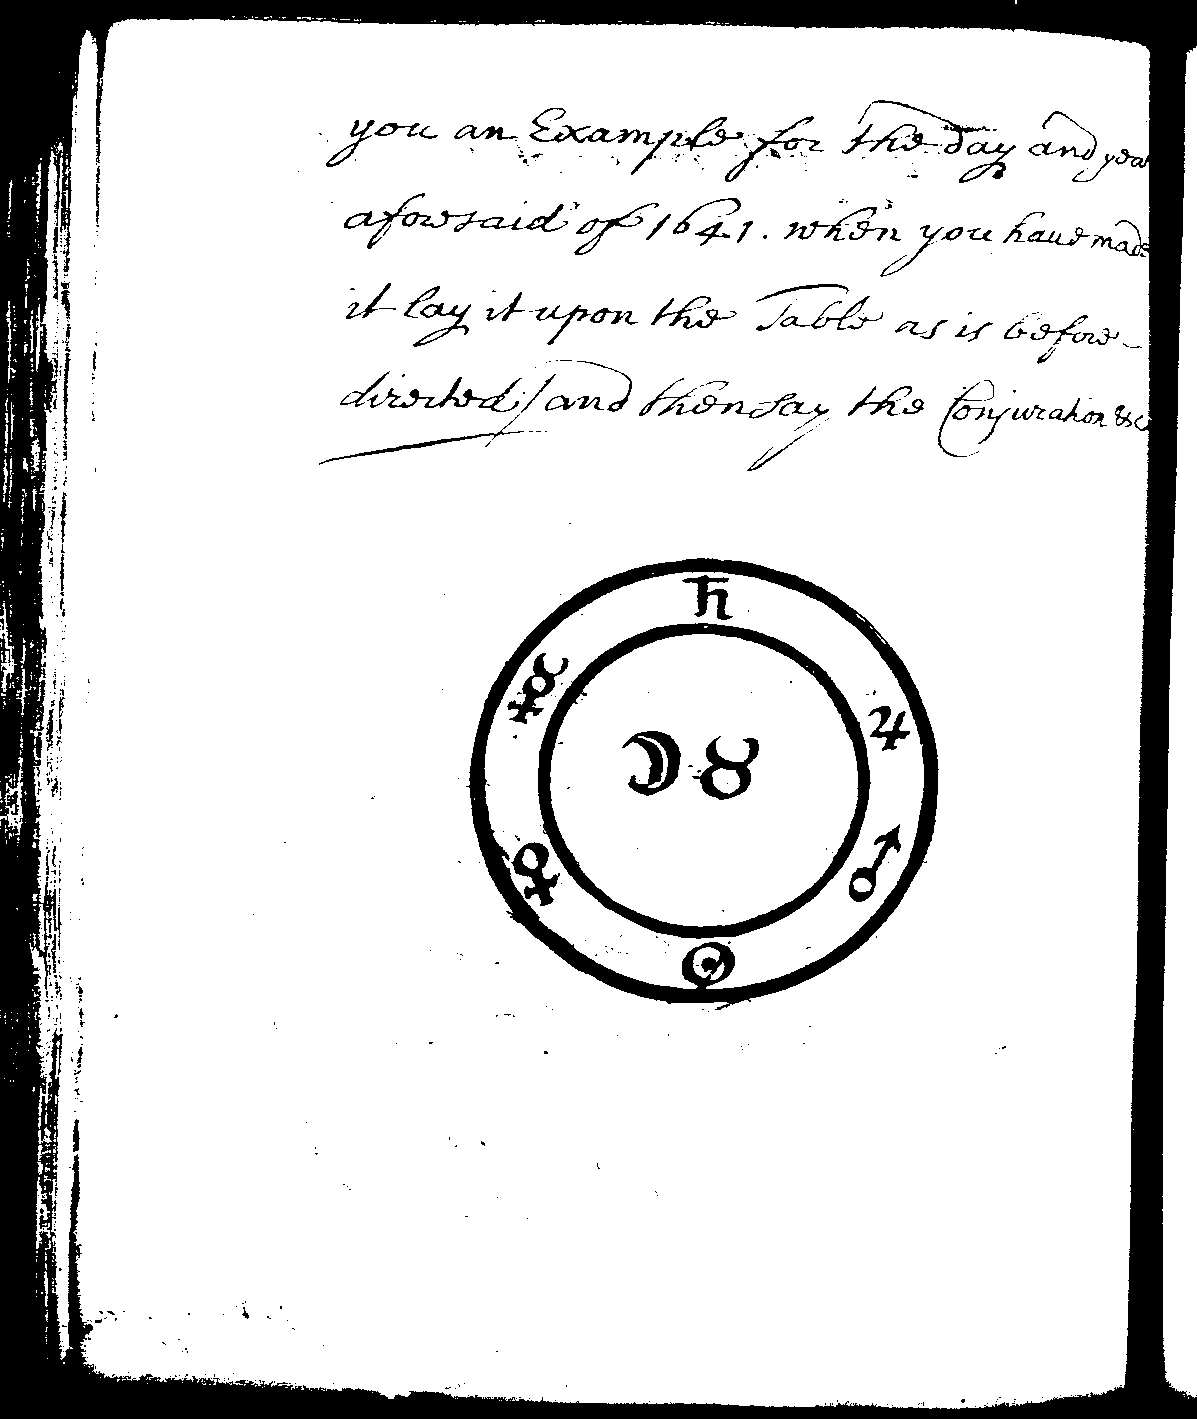 you an Example for the day and year
aforesaid of 1641. when you have made
it lay it upon the Table as is before
directed / and then say the Conjuration &c
♄
☿
♃
☽ ♉
♀
♂
☉